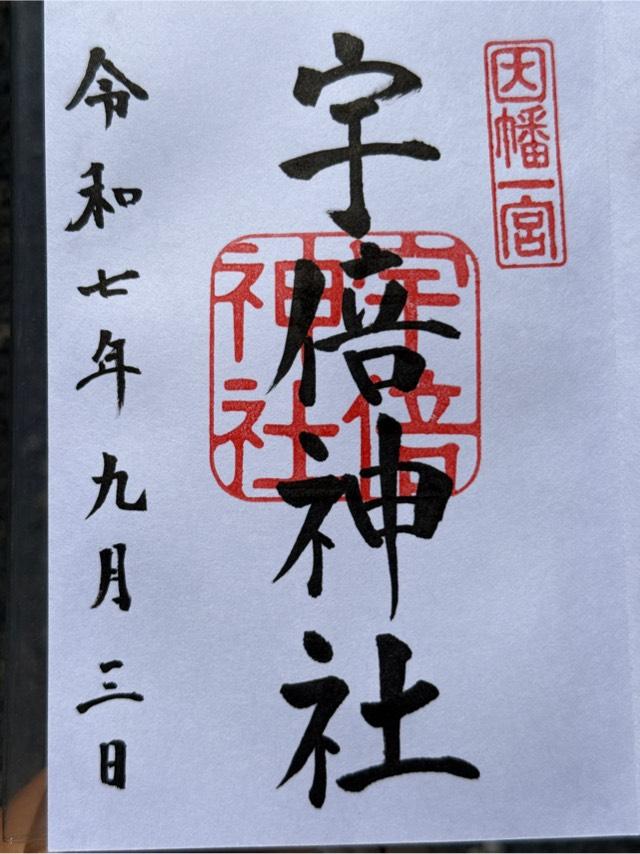 因幡一宮
宇倍神社
宇倍
神社
令和七年九月三日